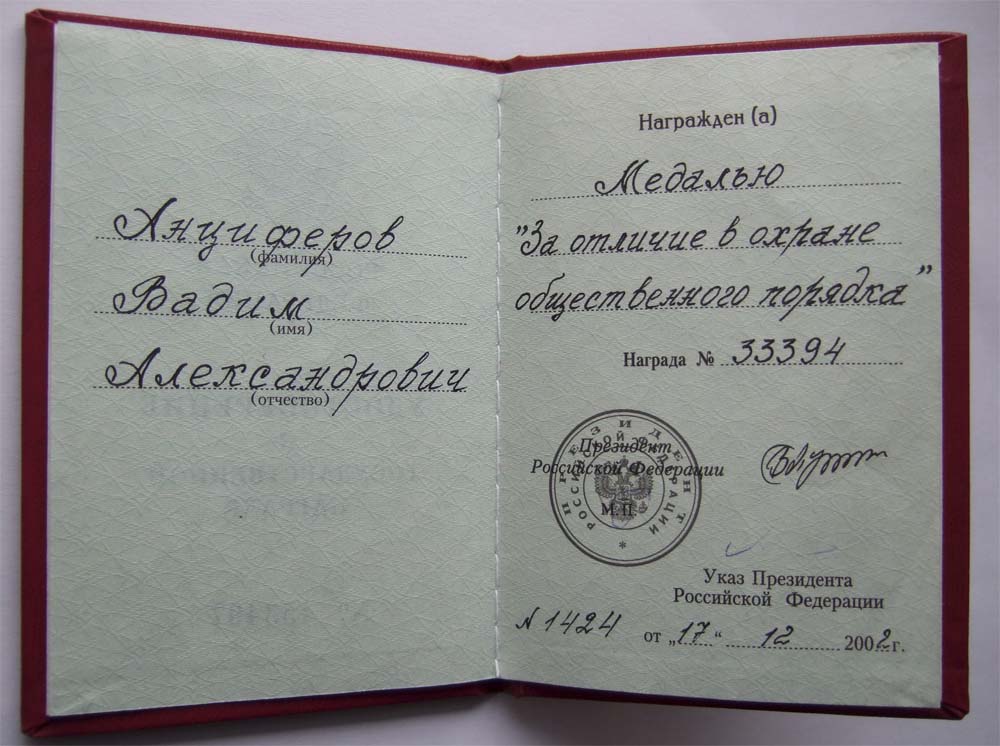 Анциферов
(фамилия)
Вадим
(имя)
Александрович
(отчество)
Награжден (а)
Медалью
"За отличие в охране
общественного порядка"
Награда № 33394
ПРЕЗИДЕНТ
РОССИЙСКОЙ ФЕДЕРАЦИИ
*
Президент
Российской Федерации
М.П.
Указ Президента
Российской Федерации
№ 1424 от „17“ 12 2002 г.